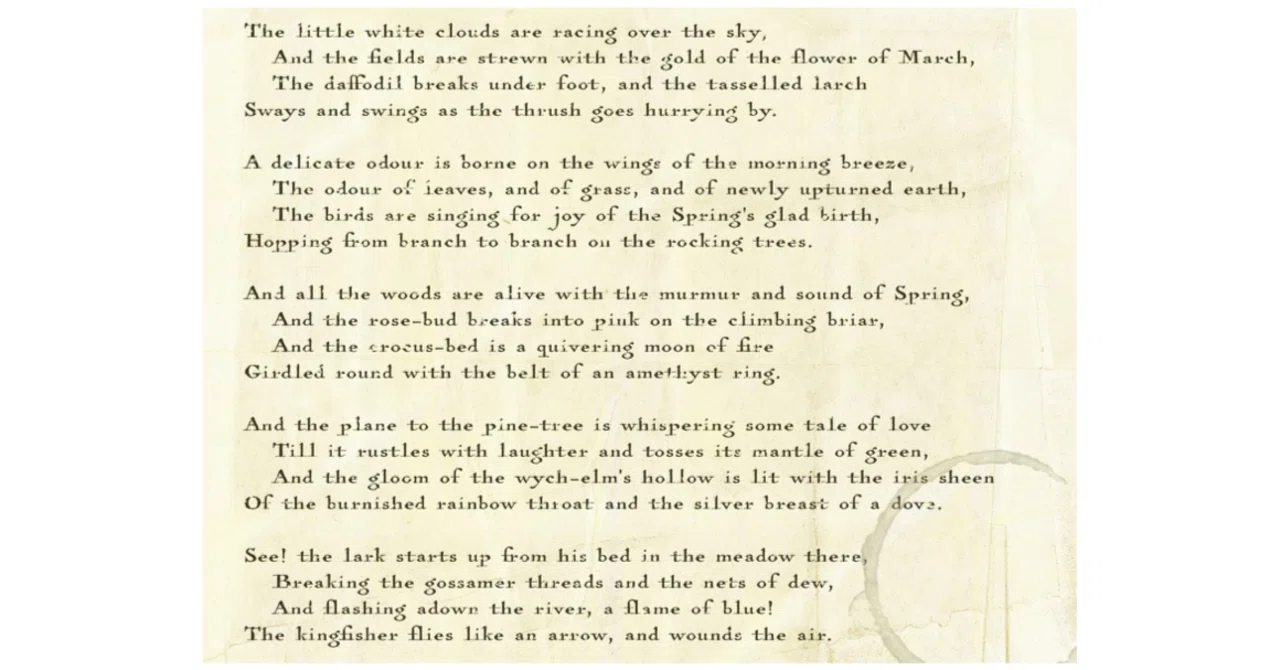 The little white clouds are racing over the sky,
And the fields are strewn with the gold of the flower of March,
The daffodil breaks under foot, and the tasselled larch
Sways and swings as the thrush goes hurrying by.
A delicate odour is borne on the wings of the morning breeze,
The odour of leaves, and of grass, and of newly upturned earth,
The birds are singing for joy of the Spring's glad birth,
Hopping from branch to branch on the rocking trees.
And all the woods are alive with the murmur and sound of Spring,
And the rose-bud breaks into pink on the climbing briar,
And the crocus-bed is a quivering moon of fire
Girdled round with the belt of an amethyst ring.
And the plane to the pine-tree is whispering some tale of love
Till it rustles with laughter and tosses its mantle of green,
And the gloom of the wych-elm's hollow is lit with the iris sheen
Of the burnished rainbow throat and the silver breast of a dove.
See! the lark starts up from his bed in the meadow there,
Breaking the gossamer threads and the nets of dew,
And flashing adown the river, a flame of blue!
The kingfisher flies like an arrow, and wounds the air.